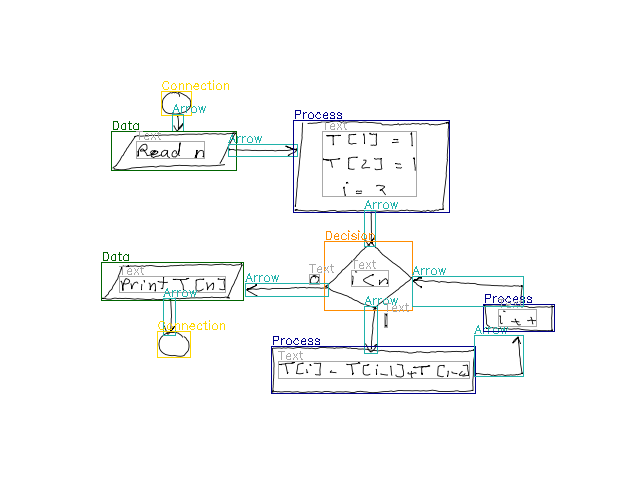 Connection
Arrow
Data
Text
Read n
Arrow
Process
Text
T[1] = 1
T[2] = 1
i = 3
Arrow
Decision
Text
i<n
Text
0
Arrow
Arrow
Data
Text
Print T[n]
Arrow
Connection
Arrow
Text
1
Process
Text
i++
Arrow
Process
Text
T[i] - T[i_1]+T[i-2]